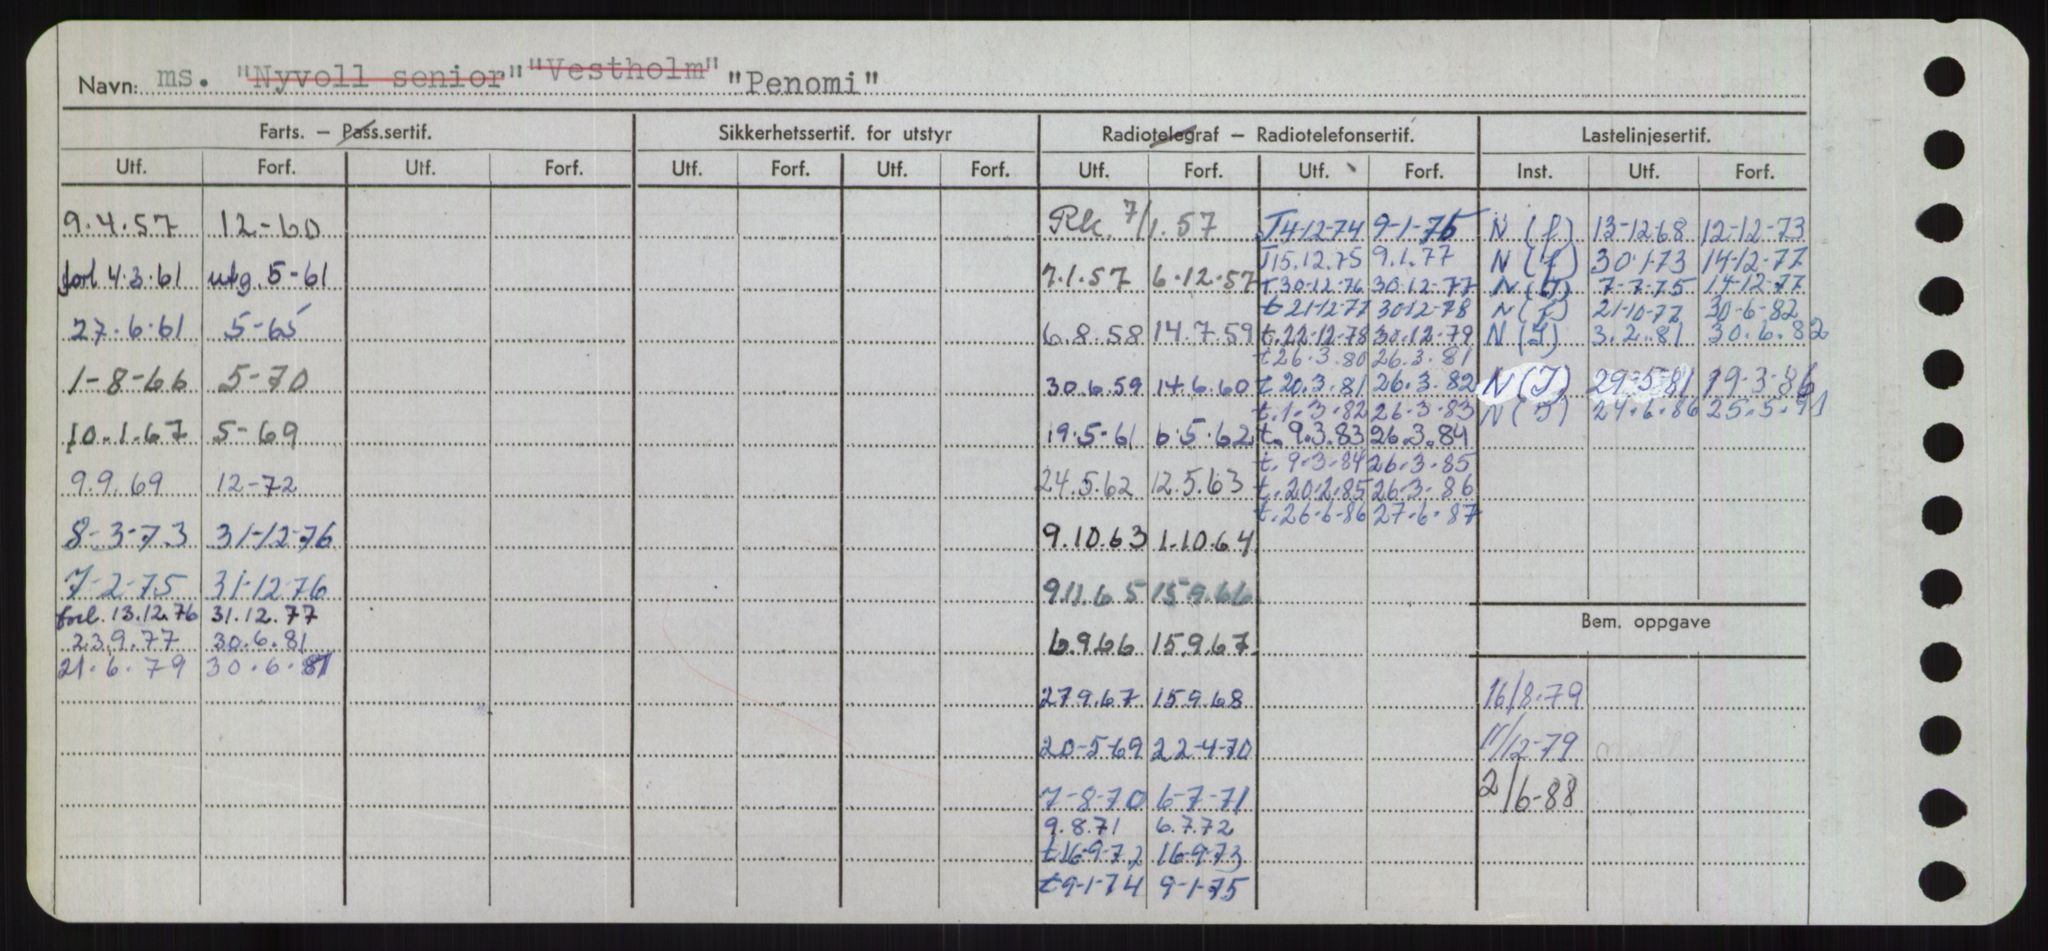 Navn: ms. "Nyvoll senior" "Vestholm" "Penomi"
Farts. – Pass.sertif. Sikkerhetssertif. for utstyr Radiotelegraf – Radiotelefonsertif. Lastelinjesertif.
Utf. Forf. Utf. Forf. Utf. Forf. Utf. Forf. Utf. Forf. Utf. Forf. Inst. Utf. Forf.
9.4.57 12-60
forl 4.3.61 utg. 5-61
27.6.61 5-65
1-8-66 5-70
10.1.67 5-69
9.9.69 12-72
8-3-73 31-12-76
7-2-75 31-12-76
forl. 13.12.76 31.12.77
23.9.77 30.6.81
21.6.79 30.6.81
Rk. 7/1.57
7.1.57 6.12.57
6.8.58 14.7.59
30.6.59 14.6.60
19.5-61 6.5.62
24.5.62 12.5.63
9.10.63 1.10.64
9.11.65 15.9.66
6.9.66 15.9.67
27.9.67 15.9.68
20-5-69 22-4-70
7-8-70 6-7-71
9.8.71 6.7.72
t16-9-72 16-9-73
t9-1-74 9-1-75
T4-12-74 9-1-76
T15.12.75 9.1.77
T30-12-76 30-12-77
t 21-12-77 30-12-78
t.22-12-78 30.12.79
t26.3.80 26.3.81
t 20.3.81 26.3.82
t.1.3.82 26.3.83
t. 9.3.83 26.3.84
t. 9-3-84 26.3.85
t. 20.2.85 26.3.86
t. 26-6-86 27.6.87
N (f) 13-12-68 12-12-73
N (f) 30.1.73 14-12-77
N (J) 7-7-75 14-12-77
N (f) 21-10-77 30-6-82
N (J) 3.2.81 30.6.82
N (J) 29-5-81 19-3-86
N (J) 24.6.86 25.5.91
Bem. oppgave
16/8.79
11/12-79
2/6-88